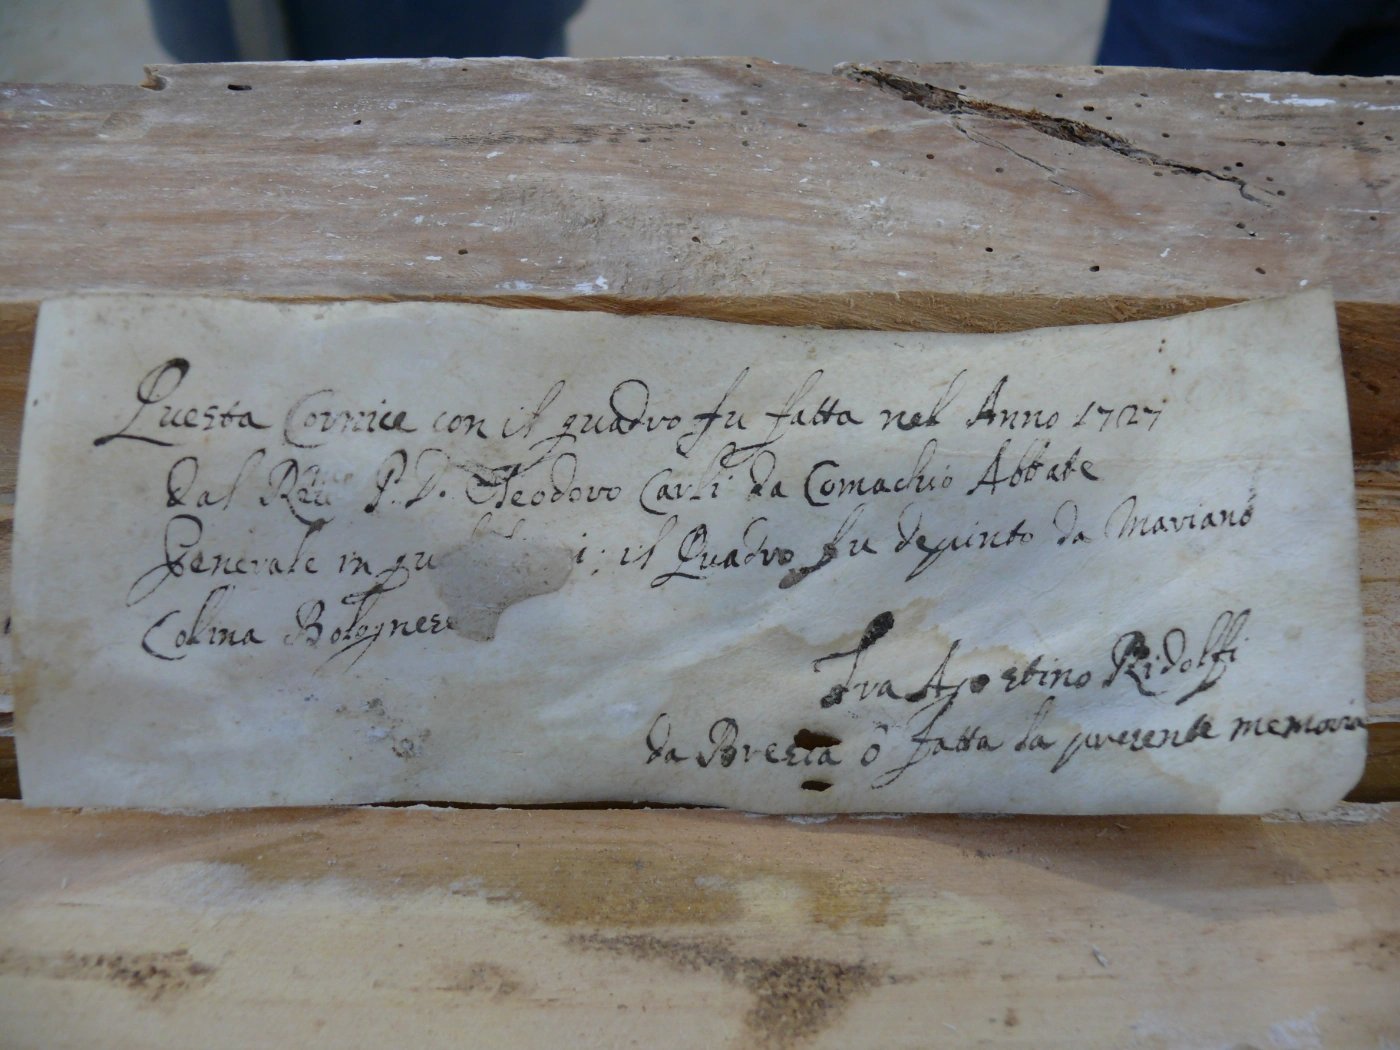 Questa Cornice con il quadro fu fatta nel Anno 1727
dal Rev.mo P. D. Teodoro Carli da Comachio Abbate
Generale in i; il Quadro fu depinto da Mariano
Colina Bolognese
Fra Agostino Ridolffi
da Brescia ò fatta la presente memoria